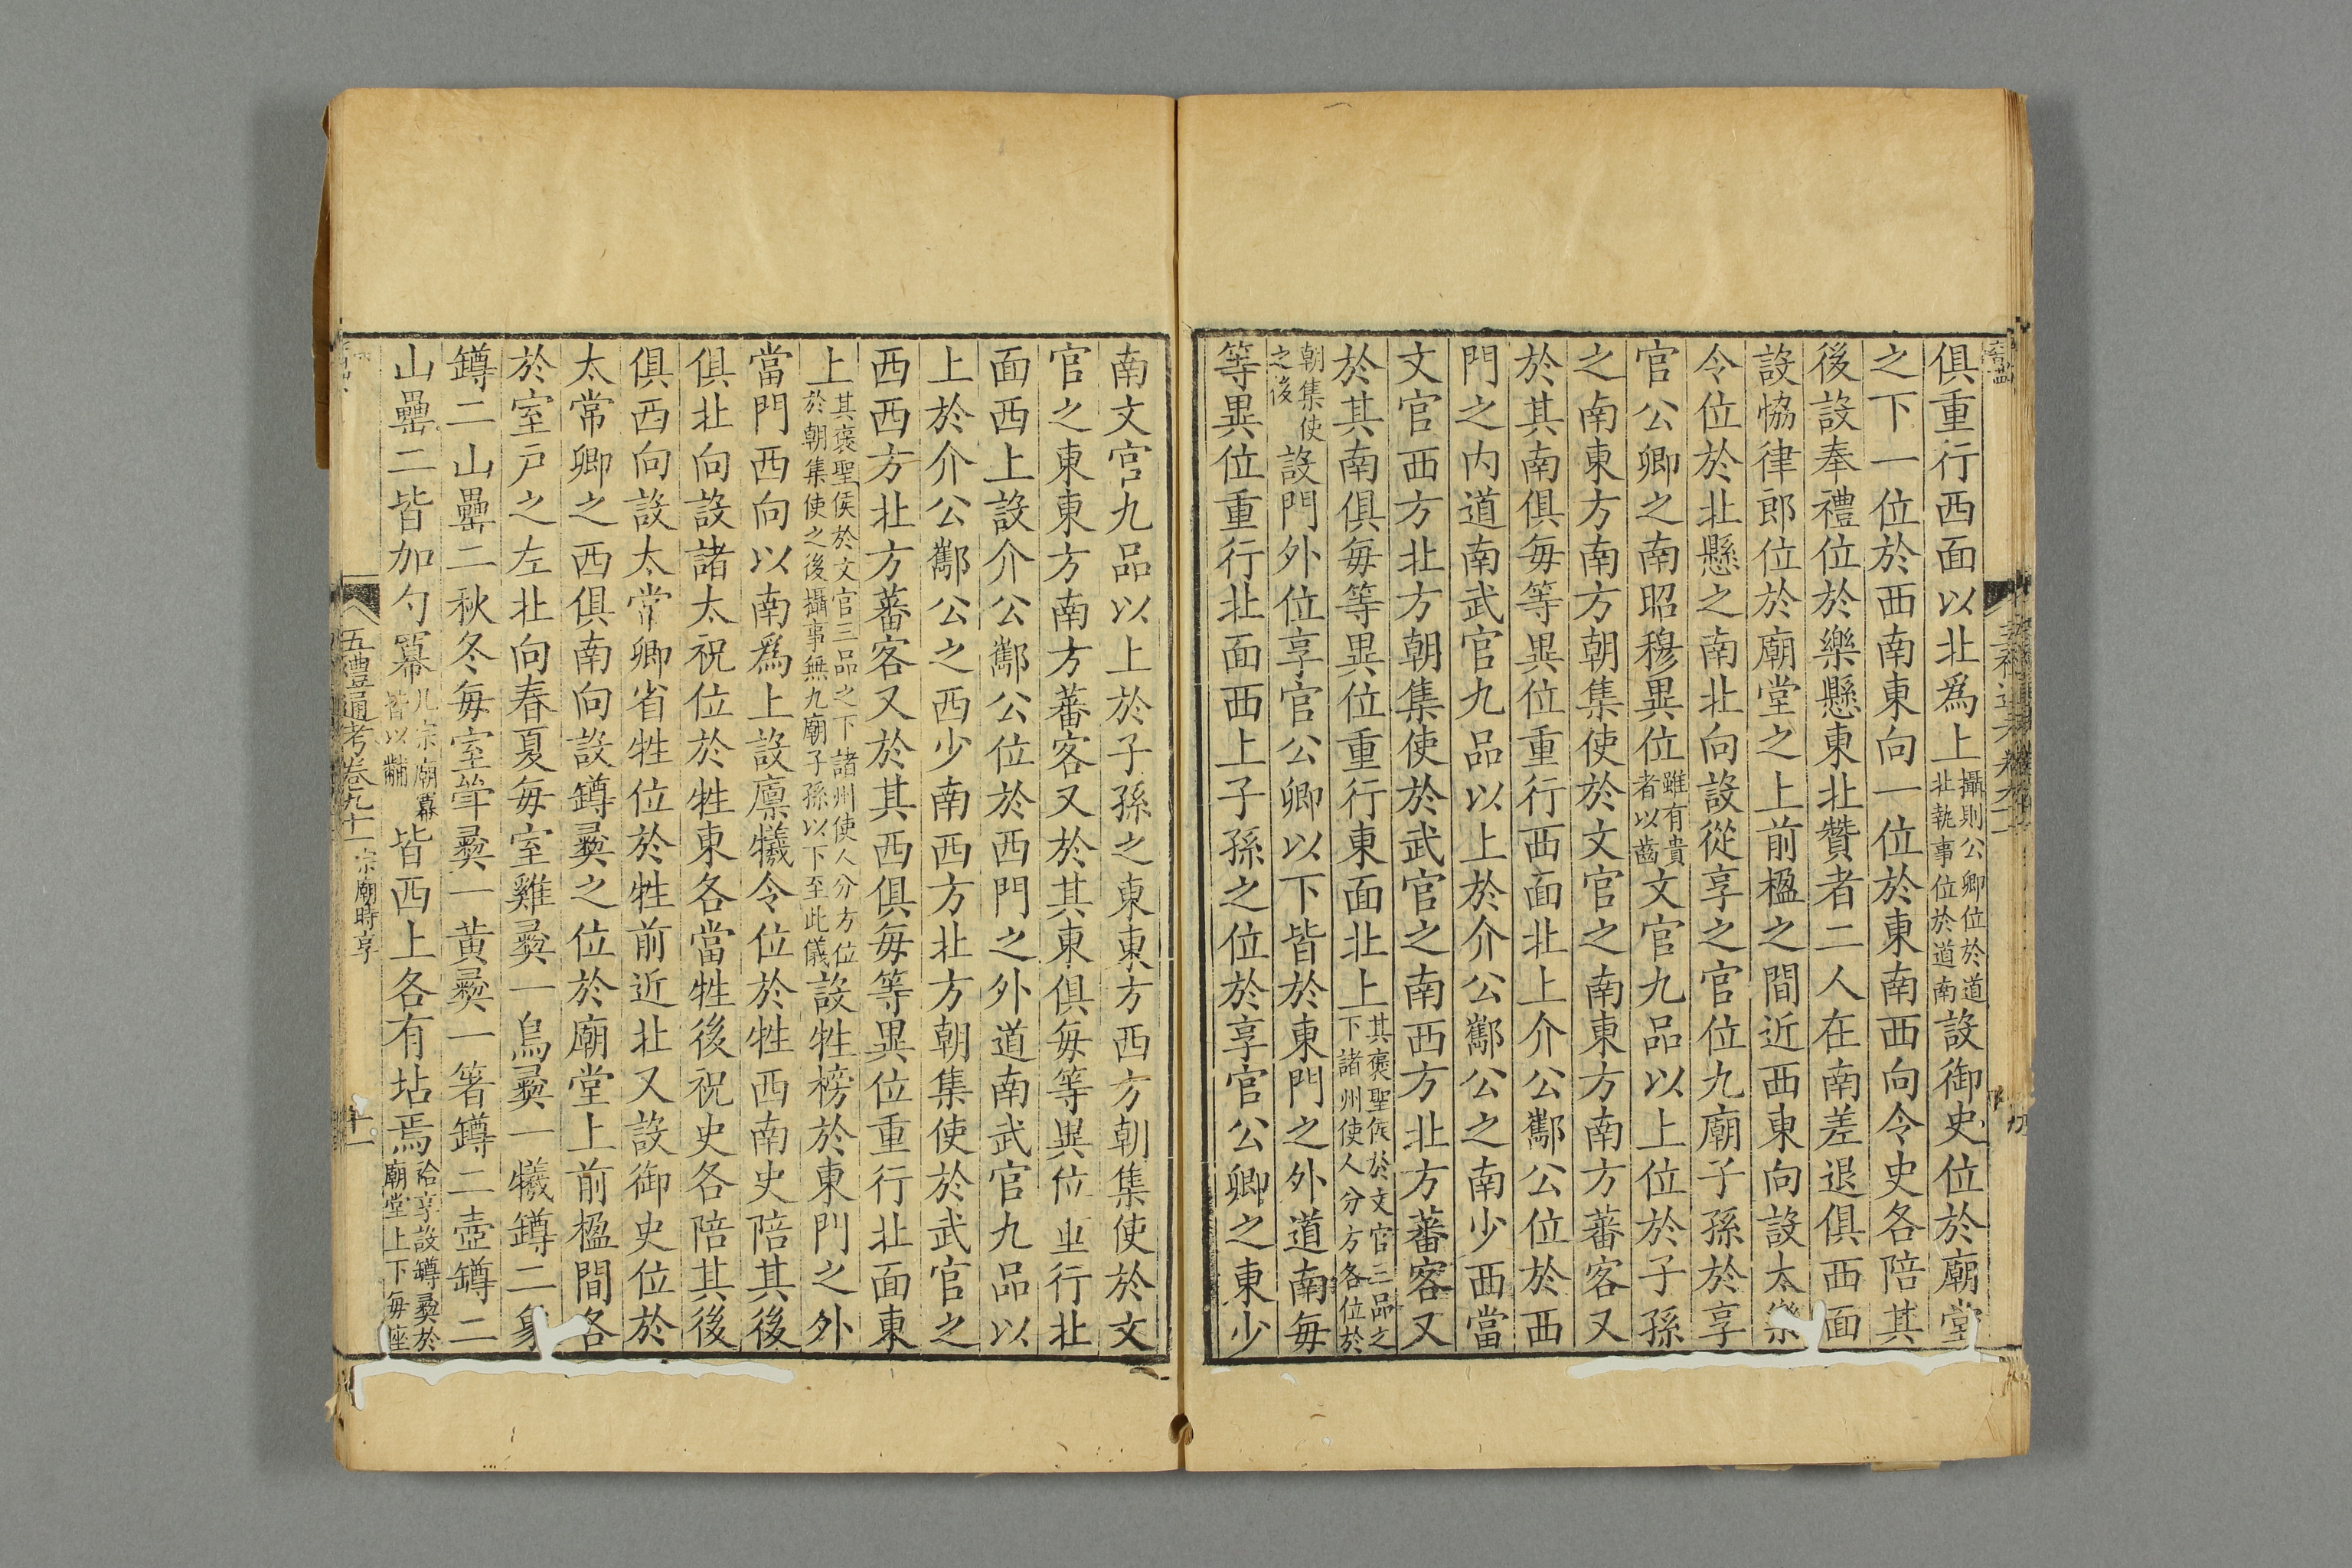 俱重行西面以北爲上攝則公卿位於道北執事位於道南設御史位於廟堂
之下一位於西南東向一位於東南西向令史各陪其
後設奉禮位於樂懸東北贊者二人在南差退俱西面
設恊律郎位於廟堂之上前楹之間近西東向設太樂
令位於北懸之南北向設從享之官位九廟子孫於享
官公卿之南昭穆異位雖有貴者以齒文官九品以上位於子孫
之南東方南方朝集使於文官之南東方南方蕃客又
於其南俱每等異位重行西面北上介公酅公位於西
門之内道南武官九品以上於介公酅公之南少西當
文官西方北方朝集使於武官之南西方北方蕃客又
於其南俱每等異位重行東面北上其褒聖侯於文官三品之下諸州使人分方各位於
朝集使之後設門外位享官公卿以下皆於東門之外道南每
等異位重行北面西上子孫之位於享官公卿之東少
南文官九品以上於子孫之東東方西方朝集使於文
官之東東方南方蕃客又於其東俱每等異位重行北
面西上設介公酅公位於西門之外道南武官九品以
上於介公酅公之西少南西方北方朝集使於武官之
西西方北方蕃客又於其西俱每等異位重行北面東
上其褒聖侯於文官三品之下諸州使人分方位於朝集使之後攝事無九廟子孫以下至此儀設牲榜於東門之外
當門西向以南爲上設廪犧令位於牲西南史陪其後
俱北向設諸太祝位於牲東各當牲後祝史各陪其後
俱西向設太常卿省牲位於牲前近北又設御史位於
太常卿之西俱南向設罇彛之位於廟堂上前楹間各
於室戸之左北向春夏每室雞彛一鳥彛一犧罇二象
罇二山罍二秋冬每室斝彛一黄彛一著罇二壺罇二
山罍二皆加勺冪凡宗廟冪皆以黼皆西上各有坫焉祫享設罇彛於廟堂上下每座
五禮通考卷九十一 宗廟時享
十一